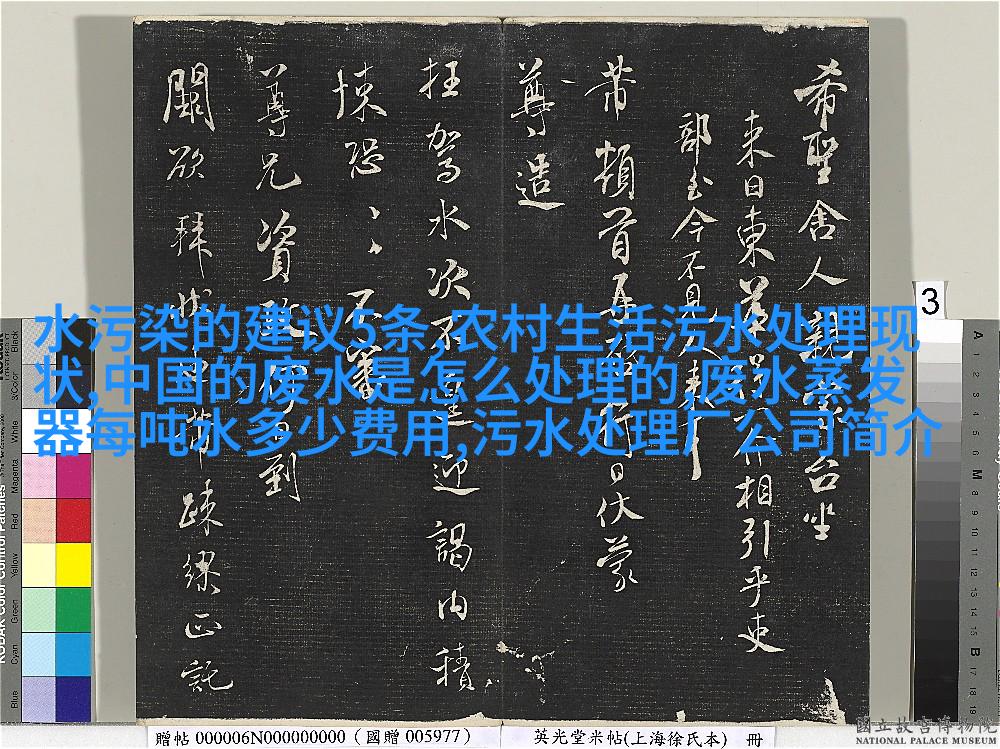 希聖舍人親家台坐
来日東作相引乎吏
部今不見人来
芾頓首再啓日伏蒙
尊造
枉駕水次不迎謁内積
悚恐〻〻不審
尊兄資政何日到
闕欲拜状芾疎繆正託
水污染的建议5条,农村生活污水处理现
状,中国的废水是怎么处理的,废水蒸发
器每吨水多少费用,污水处理厂公司简介
3
贈帖 000006N000000000 (國贈 005977)
英光堂米帖(上海徐氏本) 冊
國立故宮博物院
NATIONAL PALACE MUSEUM
3/Color
Black
White
Magenta
Red
Yellow
Green
Cyan
Blue
A 1 2 3 4 5 6 M 8 9 10 11 12 13 14 15 B 17 18 19